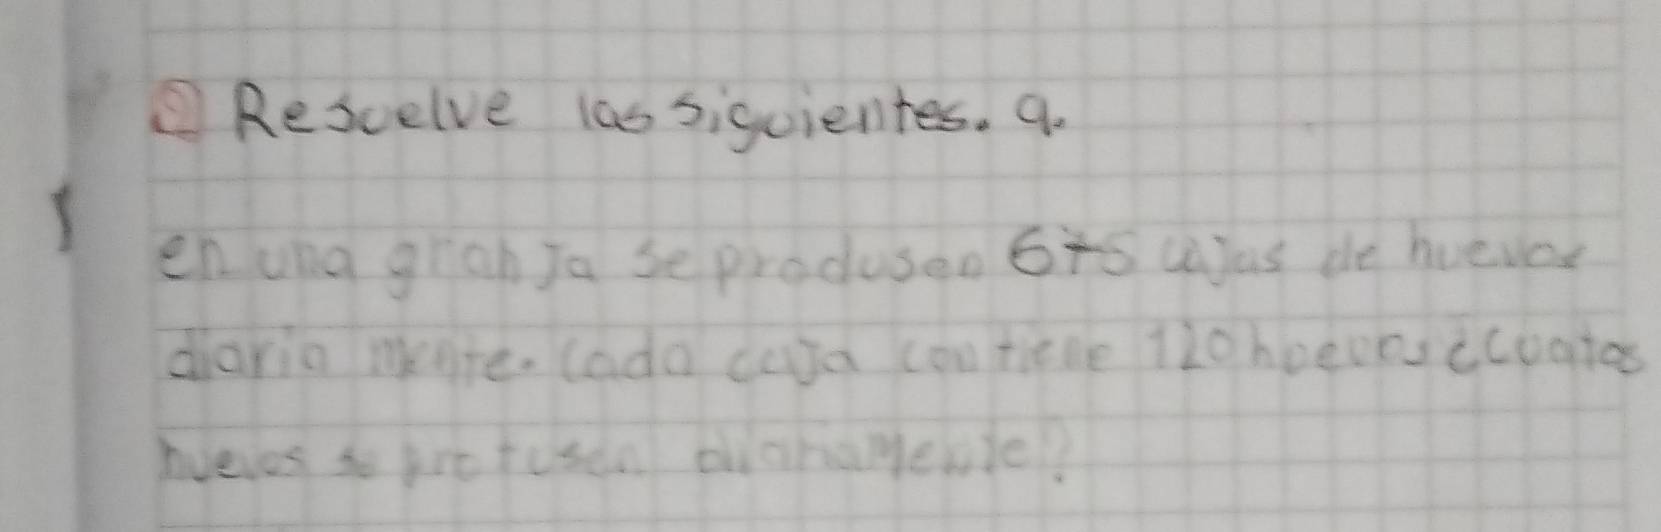 ② Rescelve las siguientes. a.
en una granja se produsen 675 cajas de huevos
diaria mente. Cada caja contiene 120 hoevos ¿cuatos
huevos se protusen diariamente?